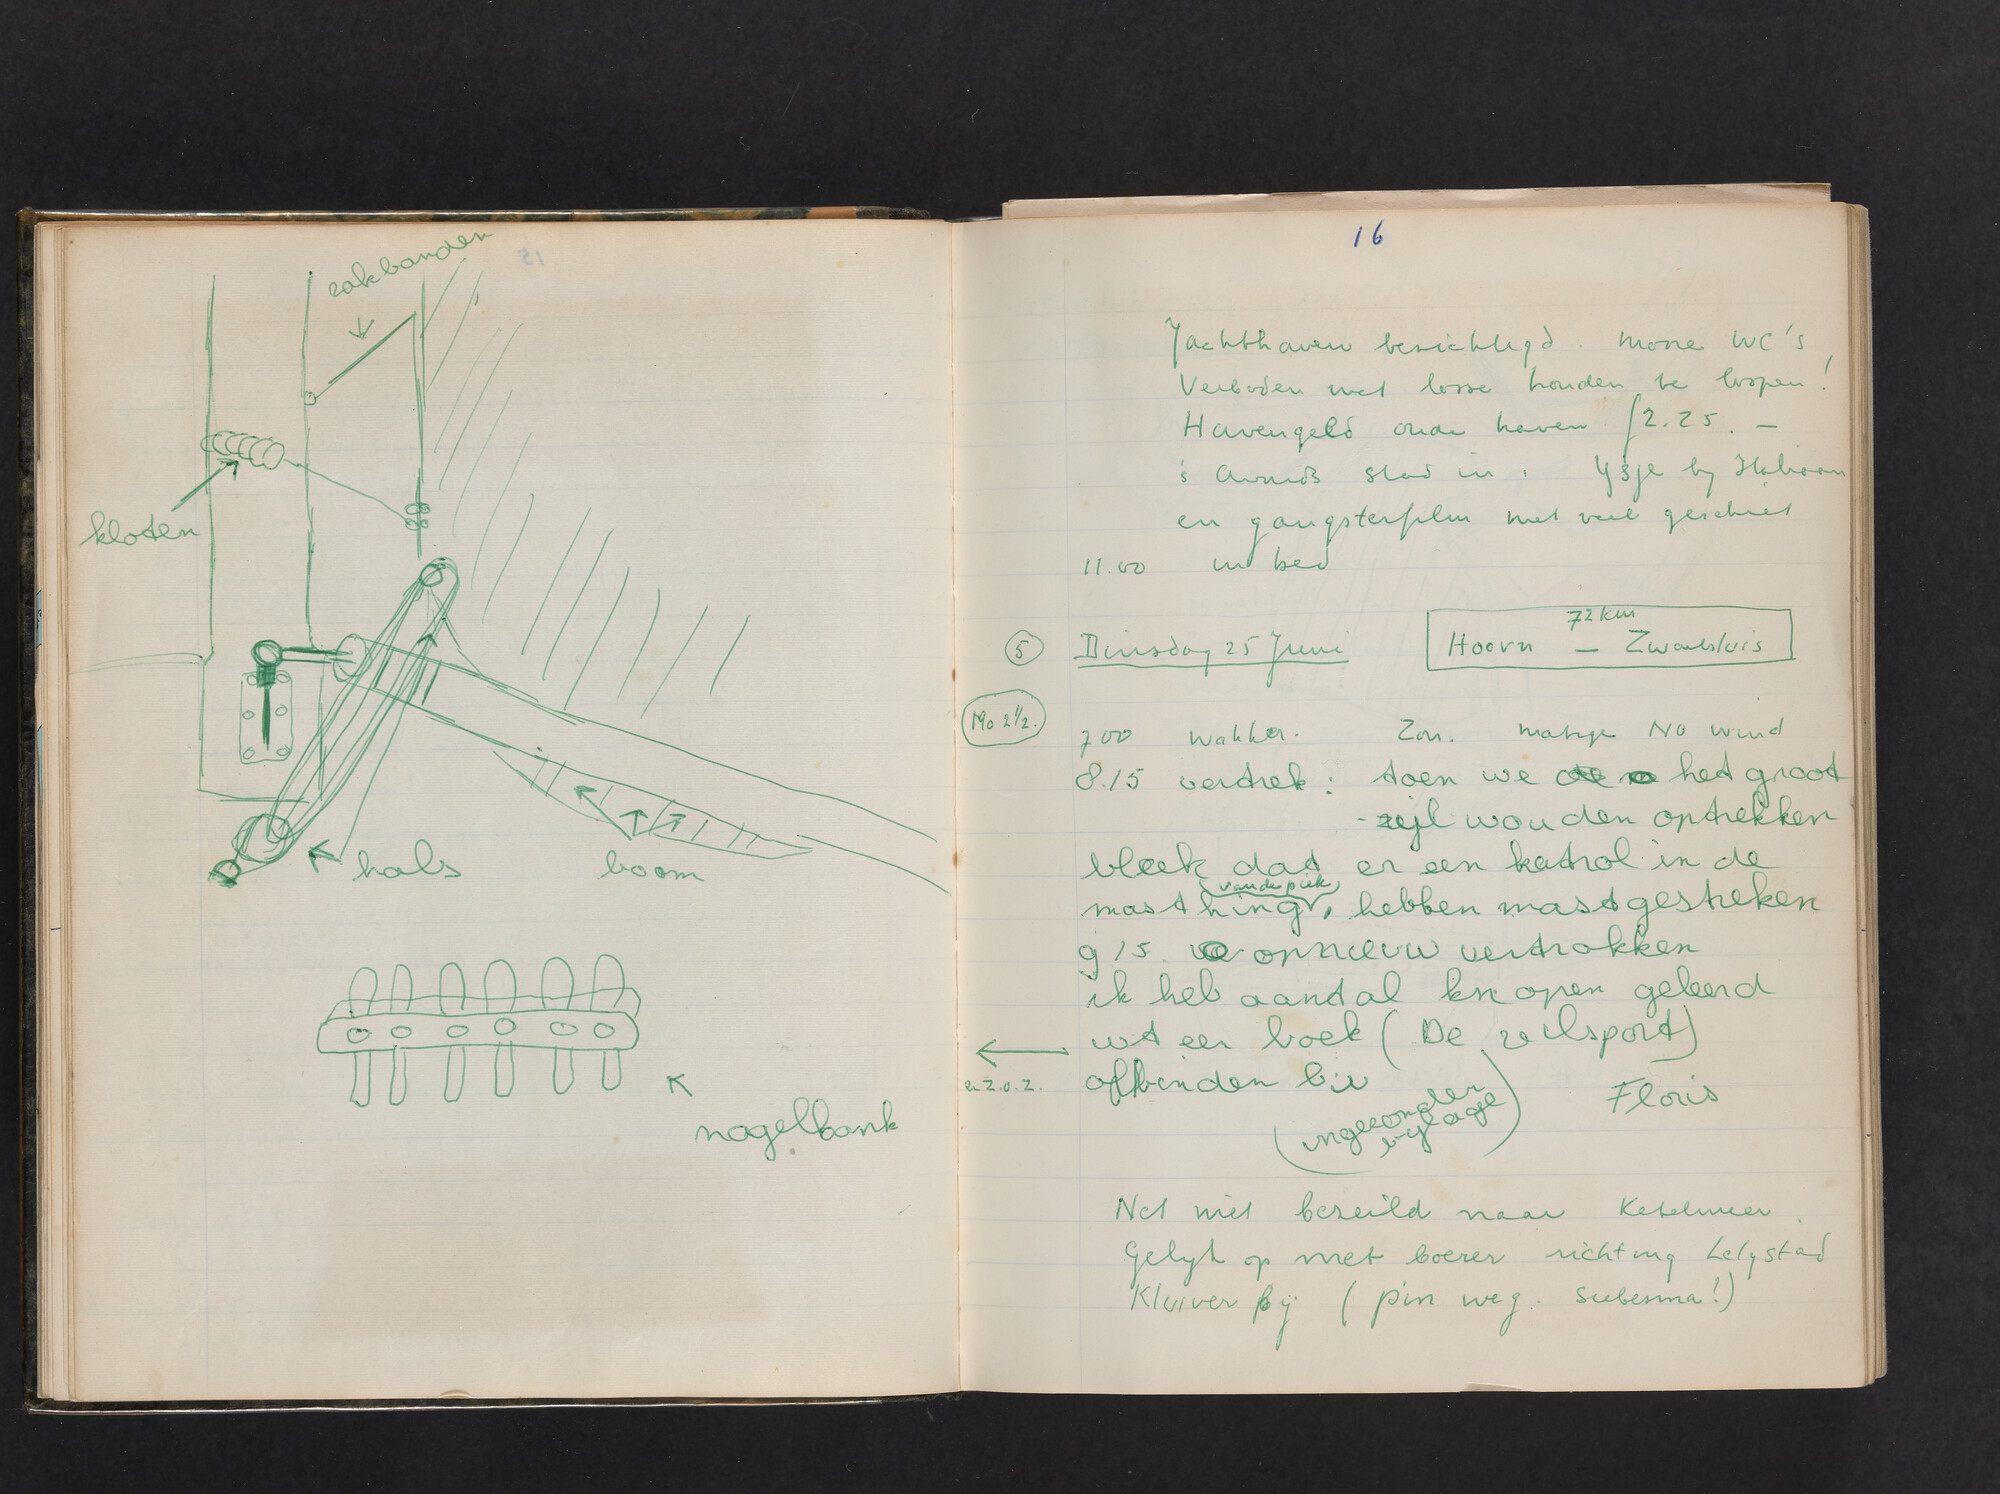 rakbanden
kloten
hals
boom
nagelbank
16
Jachthaven bezichtigd. Mooie WC's
Verboden met losse honden te lopen!
Havengeld oude haven f 2.25. —
's Avonds stad in. Ysje by
en gangsterfilm met veel geschiet
11.00 in bed
5 Dinsdag 25 Juni
72 km
Hoorn — Zwartsluis
No 2½.
7 00 wakker. Zon. matige NO wind
8.15 vertrek: toen we het groot
zeijl wouden optrekken
bleek dat er een katrol in de
van de piek
mast hing, hebben mast gestreken
9 15. opnieuw vertrokken
ik heb aantal knopen geleerd
uit een boek (De zeilsport)
z.o.z.
afbinden bij
(ingezonden
bijlage)
Floris
Net niet bezeild naar Ketelmeer.
Gelyk op met boeier richting Lelystad
Kluiver bij (pin weg. Siebesma!)